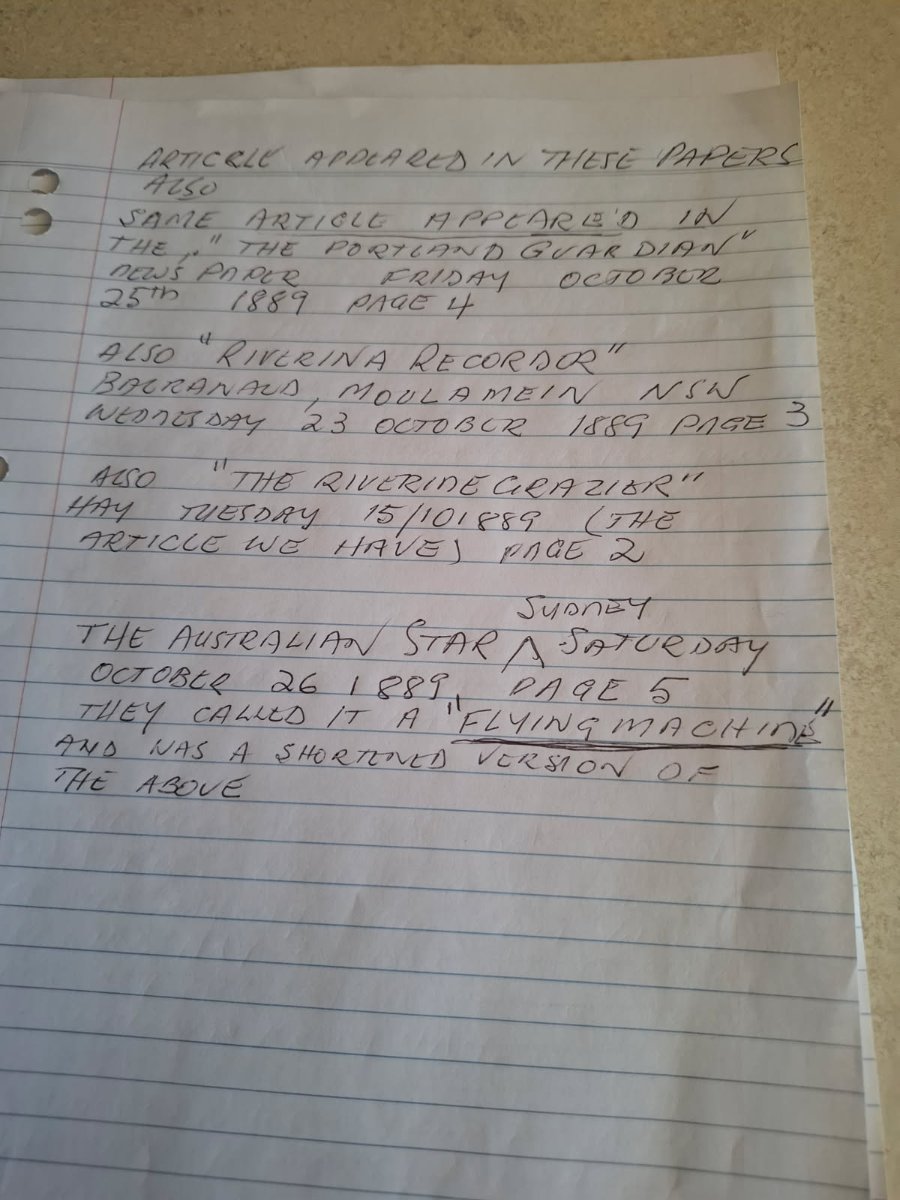 ARTICRLE APPEARED IN THESE PAPERS
ALSO
SAME ARTICLE APPEARE'D IN
THE, " THE PORTLAND GUARDIAN"
NEWS PAPER FRIDAY OCTOBER
25TH 1889 PAGE 4
ALSO "RIVERINA RECORDOR"
BALRANALD, MOULAMEIN NSW
WEDNESDAY 23 OCTOBER 1889 PAGE 3
ALSO "THE RIVERINE GRAZIER"
HAY TUESDAY 15/101889 (THE
ARTICLE WE HAVE) PAGE 2
SYDNEY
THE AUSTRALIAN STAR ^ SATURDAY
OCTOBER 26 1889, PAGE 5
THEY CALLED IT A "FLYING MACHINE"
AND WAS A SHORTENED VERSION OF
THE ABOVE